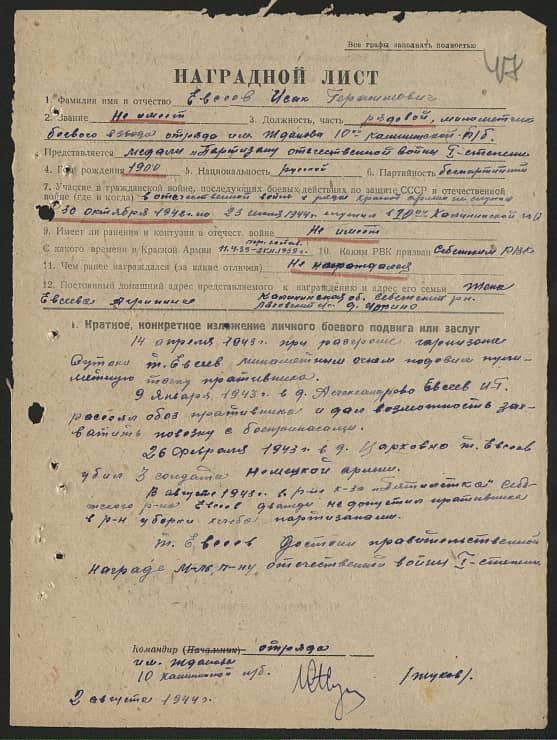 Все графы заполнять полностью
47
НАГРАДНОЙ ЛИСТ
1. Фамилия имя и отчество Евсеев Исак Герасимович
2. Звание Не имеет 3. Должность, часть рядовой, минометчик
боевого взвода отряда им. Жданова 10ой Калининской п/б.
Представляется медали „Партизану отечественной войны I-степени
4. Год рождения 1900 5. Национальность русский 6. Партийность беспартийный
7. Участие в гражданской войне, последующих боевых действиях по защите СССР и отечественной
войне (где и когда) в отечественной войне в рядах красной армии не служил
30 октября 1942г. по 23 июля 1944г. служил в 10ой Калининской п/б
9. Имеет ли ранения и контузии в отечест. войне Не имеет
С какого времени в Красной Армии 10. Каким РВК призван Себежским РВК
11. Чем ранее награждался (за какие отличия) Не награждался
12. Постоянный домашний адрес представляемого к награждению и адрес его семьи Жена
Евсеева Калининская об. Себежский р-н.
I. Краткое, конкретное изложение личного боевого подвига или заслуг
14 апреля 1943г. при разгроме гарнизона
Сутоки т. Евсеев, минометным огнем подавил пуле-
метную точку противника.
9 Января, 1943г. в д. Александрово Евсеев И.Г.
растоял обоз противника и дал возможность зах-
ватить повозку с боеприпасами.
26 Февраля 1943г. в д. Церковно т. Евсеев
убил 3 солдата Немецкой армии.
В августе 1943г. в р-не к-за Себе-
жского р-на Евсеев дважды не допустил противника
в р-н уборки хлеба партизанами.
Т. Евсеев Достоин правительственной
награде М-ль п-ну отечественной войны I-степени
Командир (Начальник) отряда
им. Жданова
10 Калининской п/б. /Жуков/.
2 августа 1944г.